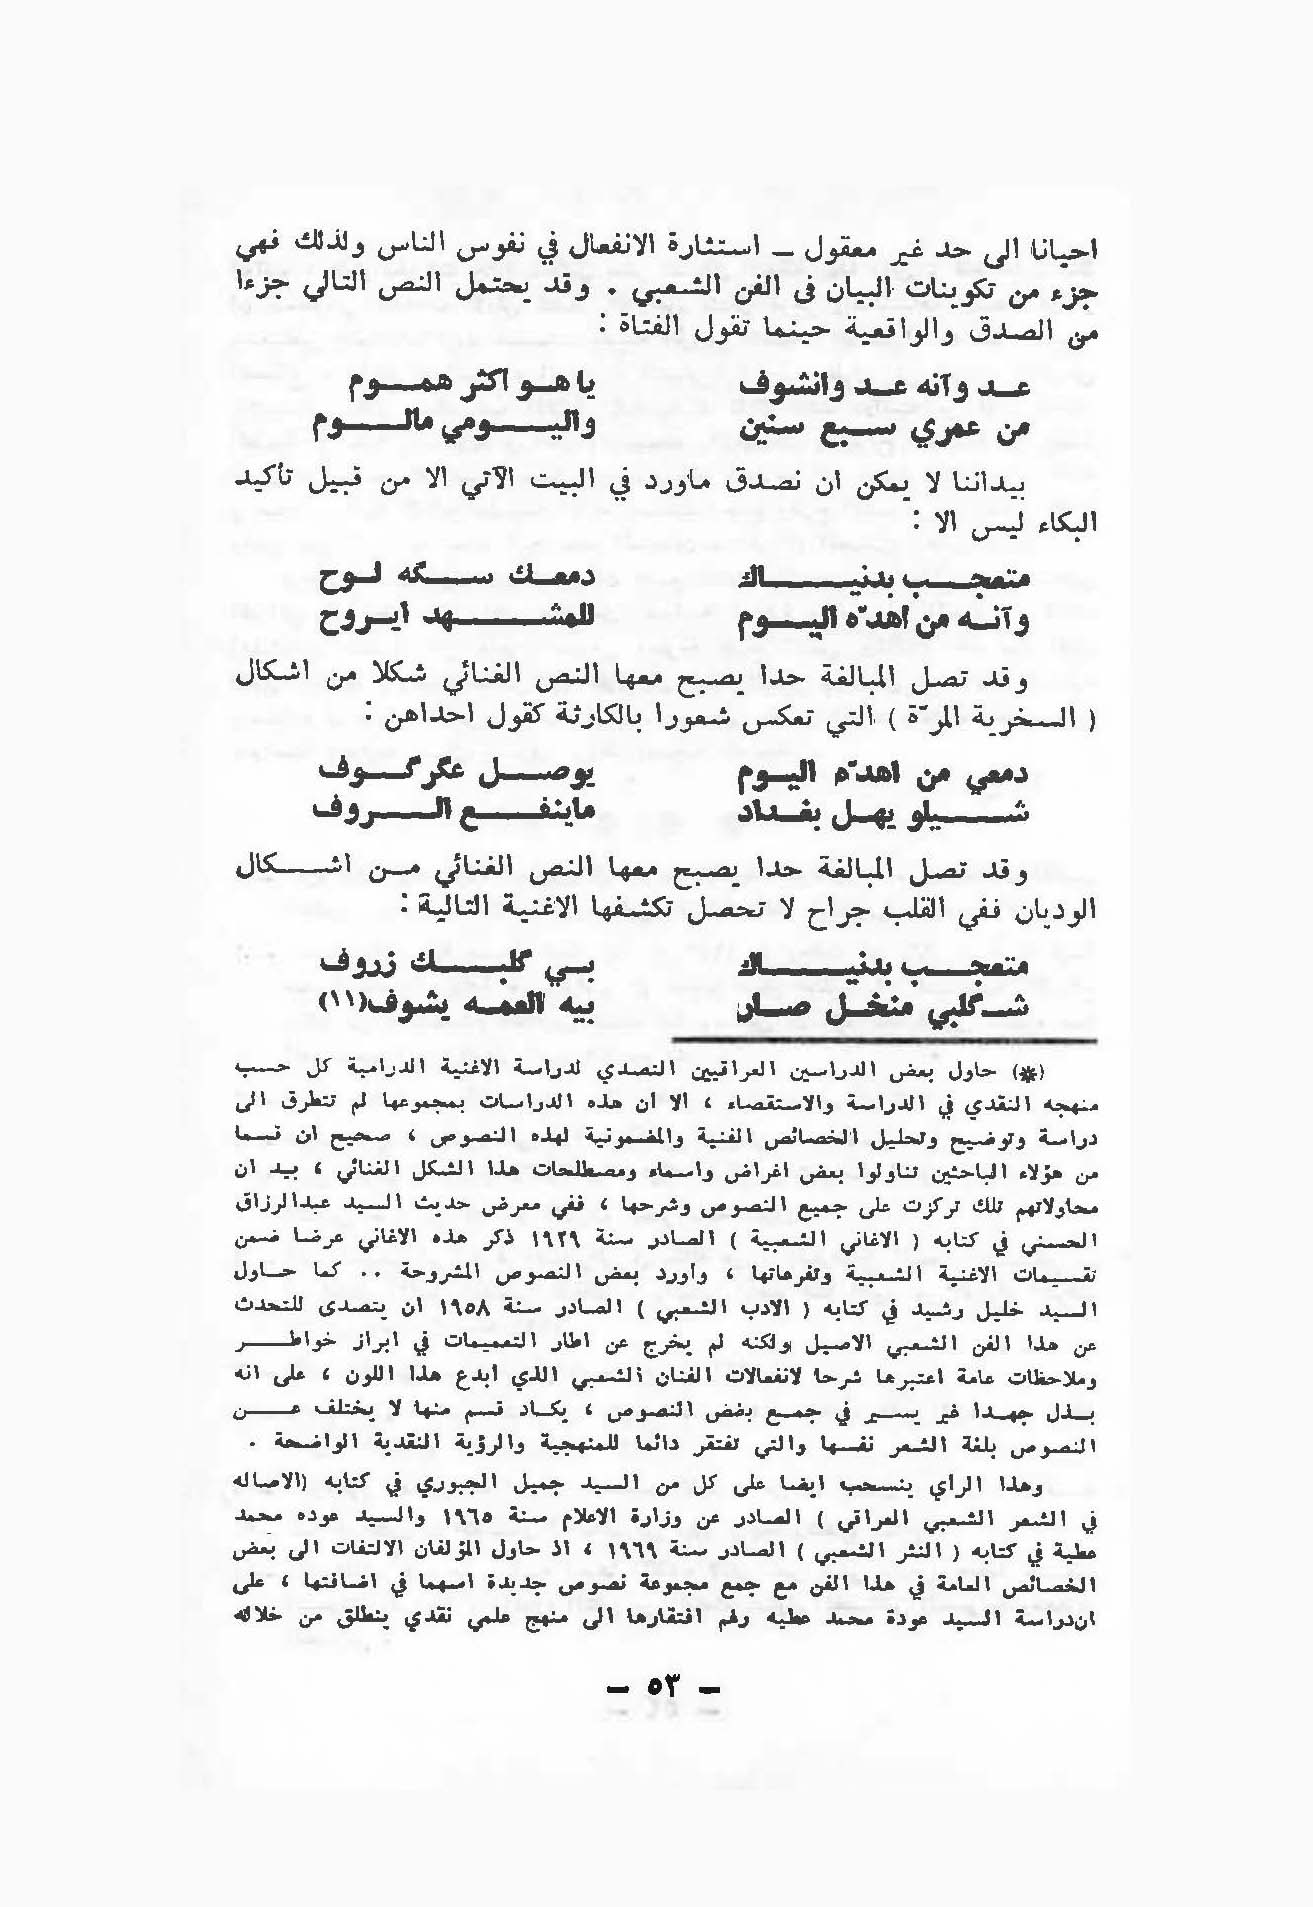 احيانا الى حد غير معقول ــ استثارة الانفعال في نفوس الناس ولذلك فهي
جزء من تكوينات البيان فى الفن الشعبي . وقد يحتمل النص التالي جزءا
من الصدق والواقعية حينما تقول الفتاة :
عد وآنه عد وانشوف ياهو اكثر هموم
من عمري سبع سنين واليومي مالوم
بيداننا لا يمكن ان نصدق ماورد في البيت الآتي الا من قبيل تأكيد
البكاء ليس الا :
متعجب بدنياك دمعك سگه لوح
وآنه من اهدّه اليوم للمشهد ايروح
وقد تصل المبالغة حدا يصبح معها النص الغنائي شكلا من اشكال
( السخرية المرّة ) التي تعكس شعورا بالكارثة كقول احداهن :
دمعي من اهدّه اليوم يوصل عگرگوف
شيلو يهل بغداد ماينفع الروف
وقد تصل المبالغة حدا يصبح معها النص الغنائي من اشكال
الوديان ففي القلب جراح لا تحصل تكشفها الاغنية التالية :
متعجب بدنياك بي گلبك زروف
شگلبي منخل صار بيه العمه يشوف(١١)
(*) حاول بعض الدارسين العراقيين التصدي لدراسة الاغنية الدرامية كل حسب
منهجه النقدي في الدراسة والاستقصاء ، الا ان هذه الدراسات بمجموعها لم تتطرق الى
دراسة وتوضيح وتحليل الخصائص الفنية والمضمونية لهذه النصوص ، صحيح ان قسما
من هؤلاء الباحثين تناولوا بعض اغراض واسماء ومصطلحات هذا الشكل الغنائي ، بيد ان
محاولاتهم تلك تركزت على جميع النصوص وشرحها ، ففي معرض حديث السيد عبدالرزاق
الحسني في كتابه ( الاغاني الشعبية ) الصادر سنة ١٩٢٩ ذكر هذه الاغاني عرضا ضمن
تقسيمات الاغنية الشعبية وتفرعاتها ، وأورد بعض النصوص المشروحة .. كما حاول
السيد خليل رشيد في كتابه ( الادب الشعبي ) الصادر سنة ١٩٥٨ ان يتصدى للتحدث
عن هذا الفن الشعبي الاصيل ولكنه لم يخرج عن اطار التعميمات في ابراز خواطر
وملاحظات عامة اعتبرها شرحا لانفعالات الفنان الشعبي الذي أبدع هذا اللون ، على انه
بذل جهدا غير يسير في جمع بعض النصوص ، يكاد قسم منها لا يختلف عن
النصوص بلغة الشعر نفسها والتي تفتقر دائما للمنهجية والرؤية النقدية الواضحة .
وهذا الرأي ينسحب ايضا على كل من السيد جميل الجبوري في كتابه (الاصاله
في الشعر الشعبي العراقي ) الصادر عن وزارة الاعلام سنة ١٩٦٥ والسيد عوده محمد
عطية في كتابه ( النثر الشعبي ) الصادر سنة ١٩٦٩ ، اذ حاول المؤلفان الالتفات الى بعض
الخصائص العامة في هذا الفن مع جمع مجموعة نصوص جديدة اسهما في اضافتها ، على
ان‌دراسة السيد عودة محمد عطيه رغم افتقارها الى منهج علمي نقدي ينطلق من خلاله
– ٥٣ –